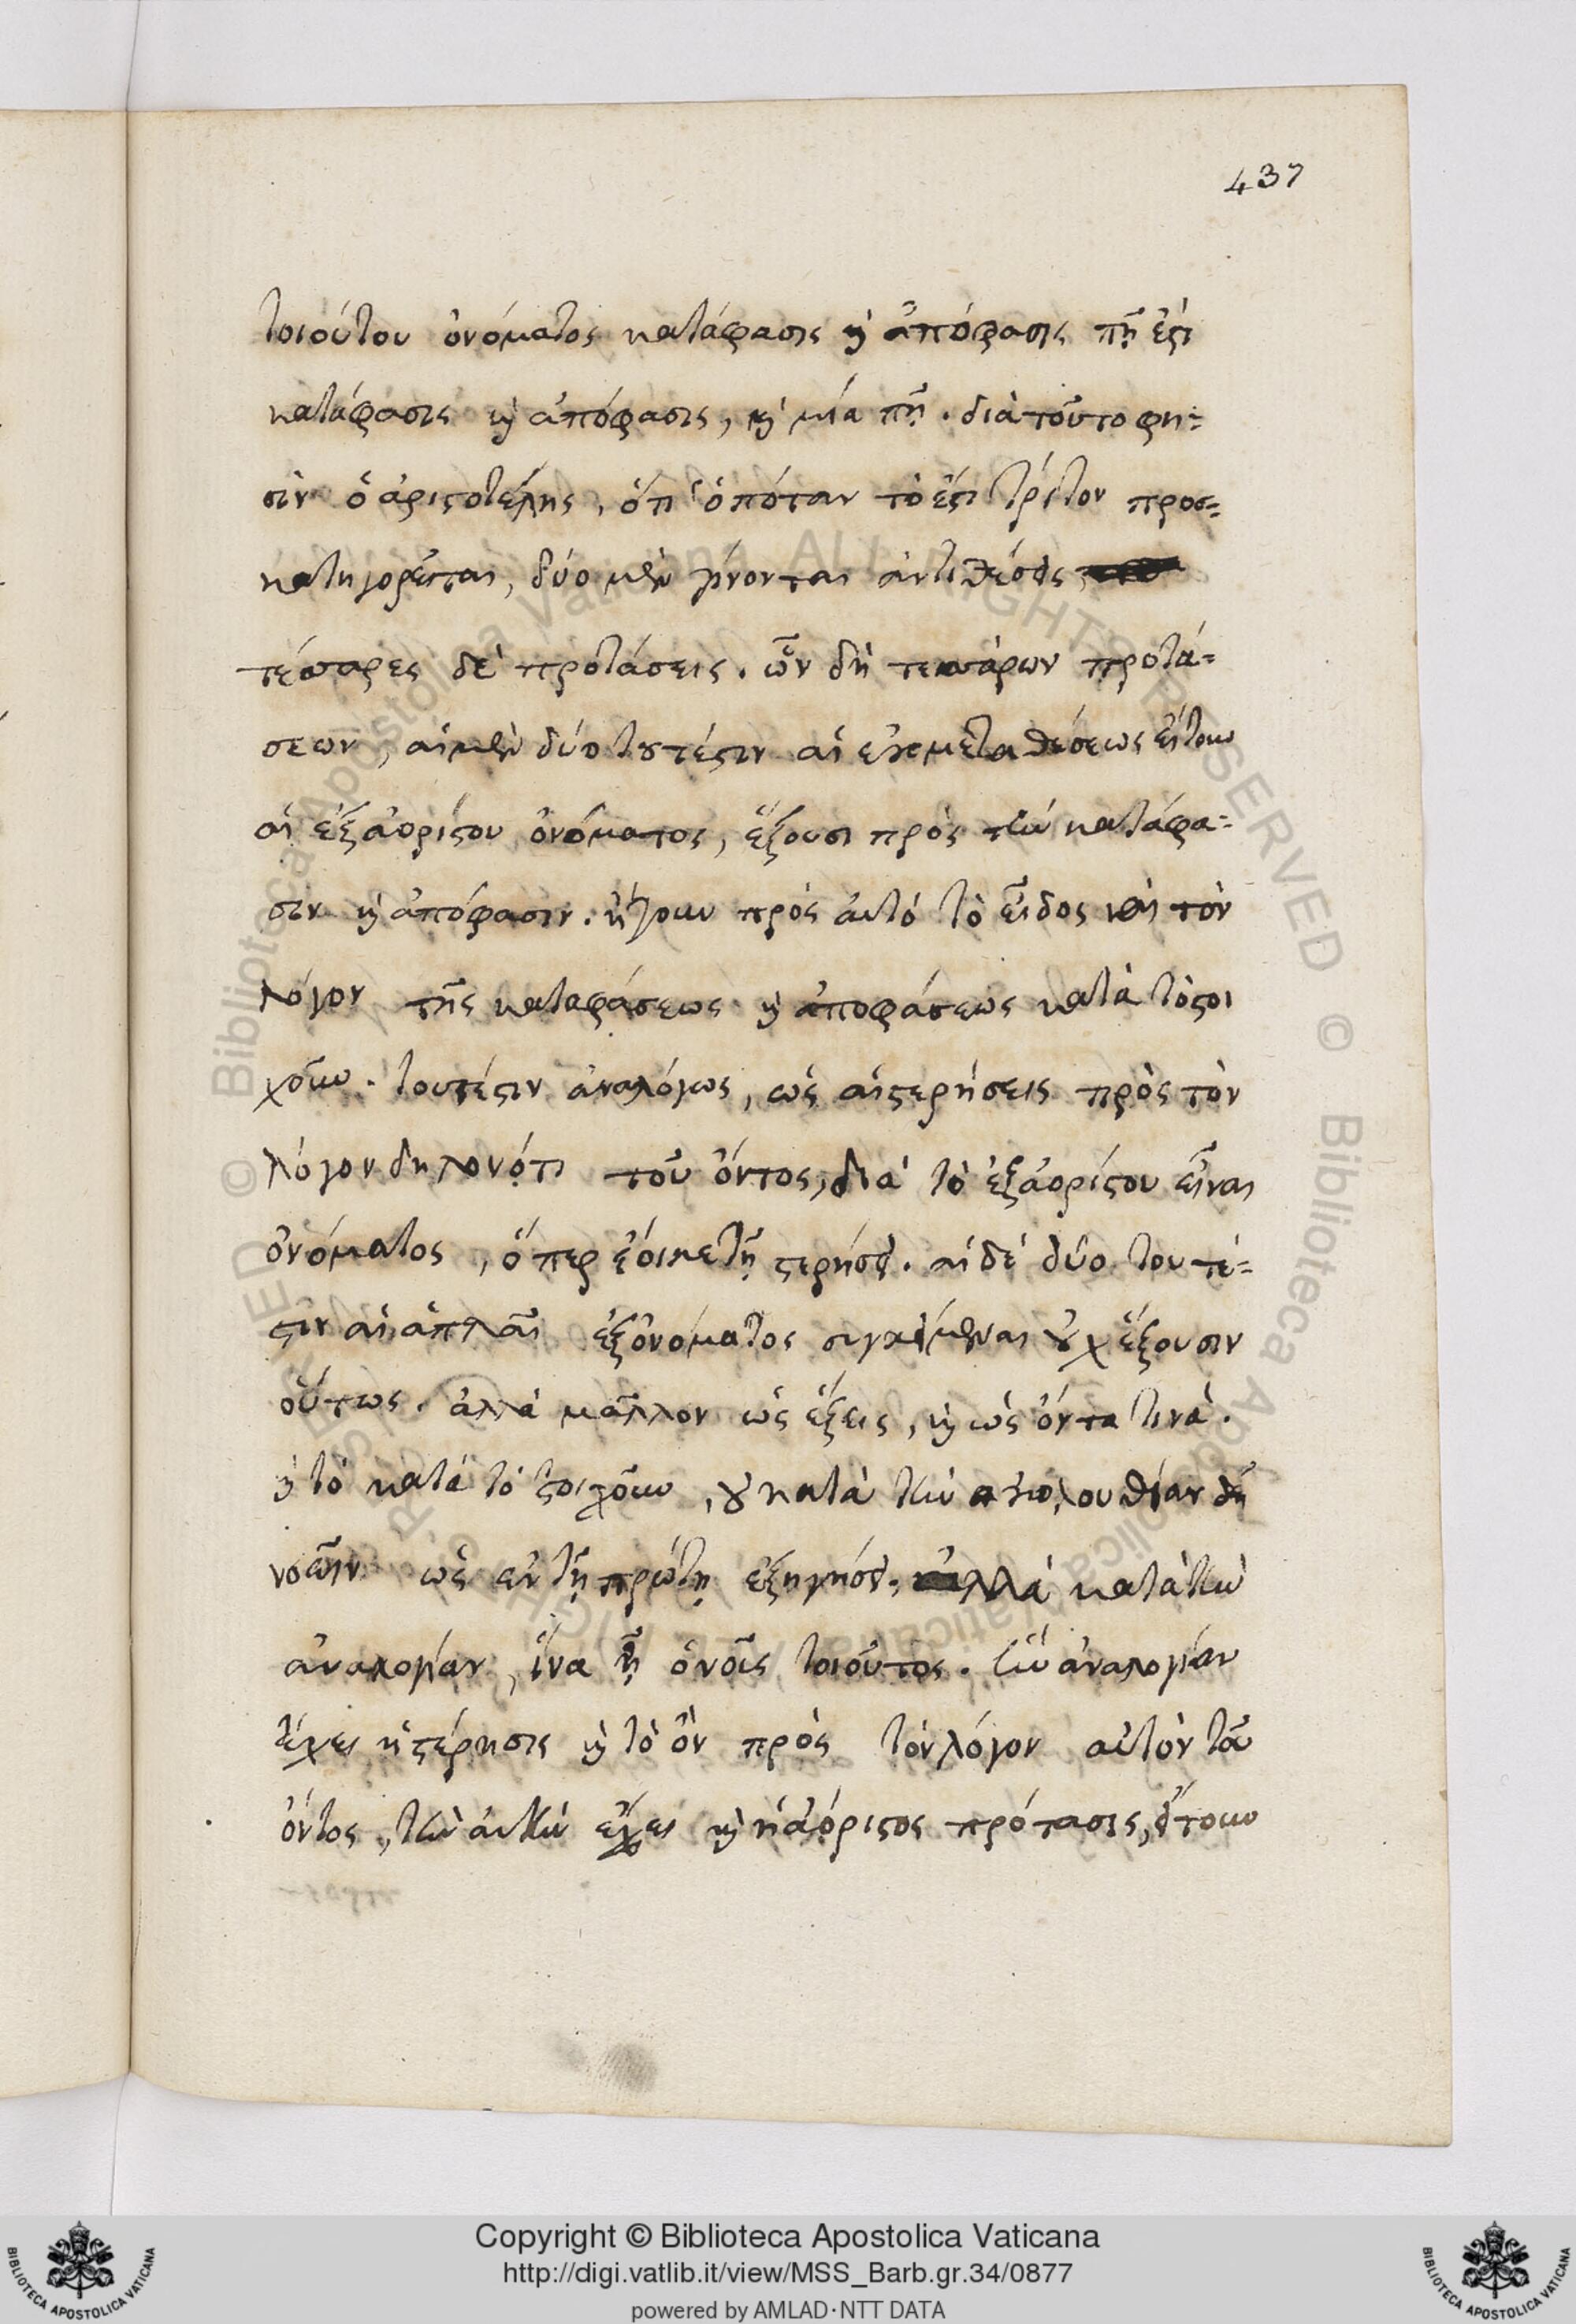 437
τοιούτου ὀνόματος κατάφασις κὶ ἀπόφασις πῆ ἐστι
κατάφασις κὶ ἀπόφασις, κὶ μία πῆ. διὰ τοῦτο φη=
σὶν ὁ ἀριστοτέλης, ὅτι ὁπόταν τὸ ἔστι τρίτον προσ=
κατηγορεῖται, δύο μὲν γίνονται ἀντιθέσεις,
τέσσαρες δὲ προτάσεις. ὧν δὴ τεσσάρων προτά=
σεων, αἱ μὲν δύο τουτέστιν αἱ ἐκ μεταθέσεως εἴτουν
αἱ ἐξ ἀορίστου ὀνόματος, ἕξουσι πρὸς τὴν κατάφα=
σιν κὶ ἀπόφασιν. ἤγουν πρὸς αὐτό τὸ εἶδος καὶ τὸν
λόγον τῆς καταφάσεως κὶ ἀποφάσεως κατὰ τὸ στοι
χοῦν. τουτέστιν ἀναλόγως, ὡς αἱ στερήσεις πρὸς τὸν
λόγον δηλονότι τοῦ ὄντος, διὰ τὸ ἐξ ἀορίστου εἶναι
ὀνόματος, ὅπερ ἔοικε τῇ στερήσει. αἱ δὲ δύο τουτέ=
στιν αἱ ἁπλαῖ ἐξ ὀνόματος συγκείμεναι οὐχ ἕξουσιν
οὕτως. ἀλλὰ μᾶλλον ὡς ἕξεις, κὶ ὡς ὄντα τινὰ.
κὶ τὸ κατὰ τὸ στοιχοῦν, οὐ κατὰ τὴν ἀκολουθίαν δεῖ
νοεῖν ὡς ἐν τῇ πρώτῃ ἐξηγήσει, ἀλλὰ κατὰ τὴν
ἀναλογίαν, ἵνα ᾖ ὁ νοῦς τοιοῦτος. ἣν ἀναλογίαν
ἔχει ἡ στέρησις κὶ τὸ ὂν πρὸς τὸν λόγον αὐτὸν τοῦ
ὄντος, τὴν αὐτὴν ἔχει κὶ ἡ ἀόριστος πρότασις, εἴτουν
Copyright © Biblioteca Apostolica Vaticana
http://digi.vatlib.it/view/MSS_Barb.gr.34/0877
powered by AMLAD·NTT DATA